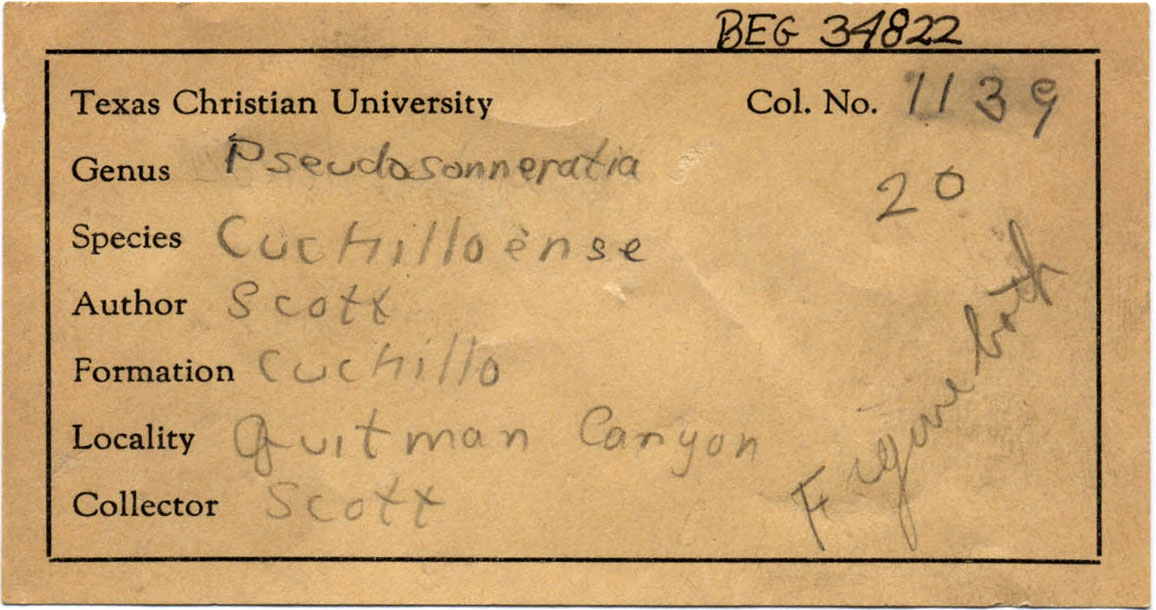 BEG 34822
Texas Christian University Col. No. 1139
Genus Pseudosonneratia
20
Species Cuchilloense
Author Scott
Formation Cuchillo
Locality Quitman Canyon
Collector Scott
Figure both